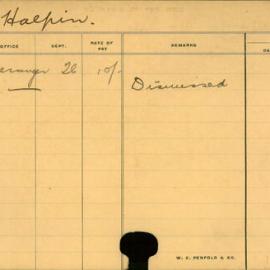 Halpin.
OFFICE SEPT. RATE OF PAY REMARKS
26 10/- Dismissed
W. C. PENFOLD & CO.